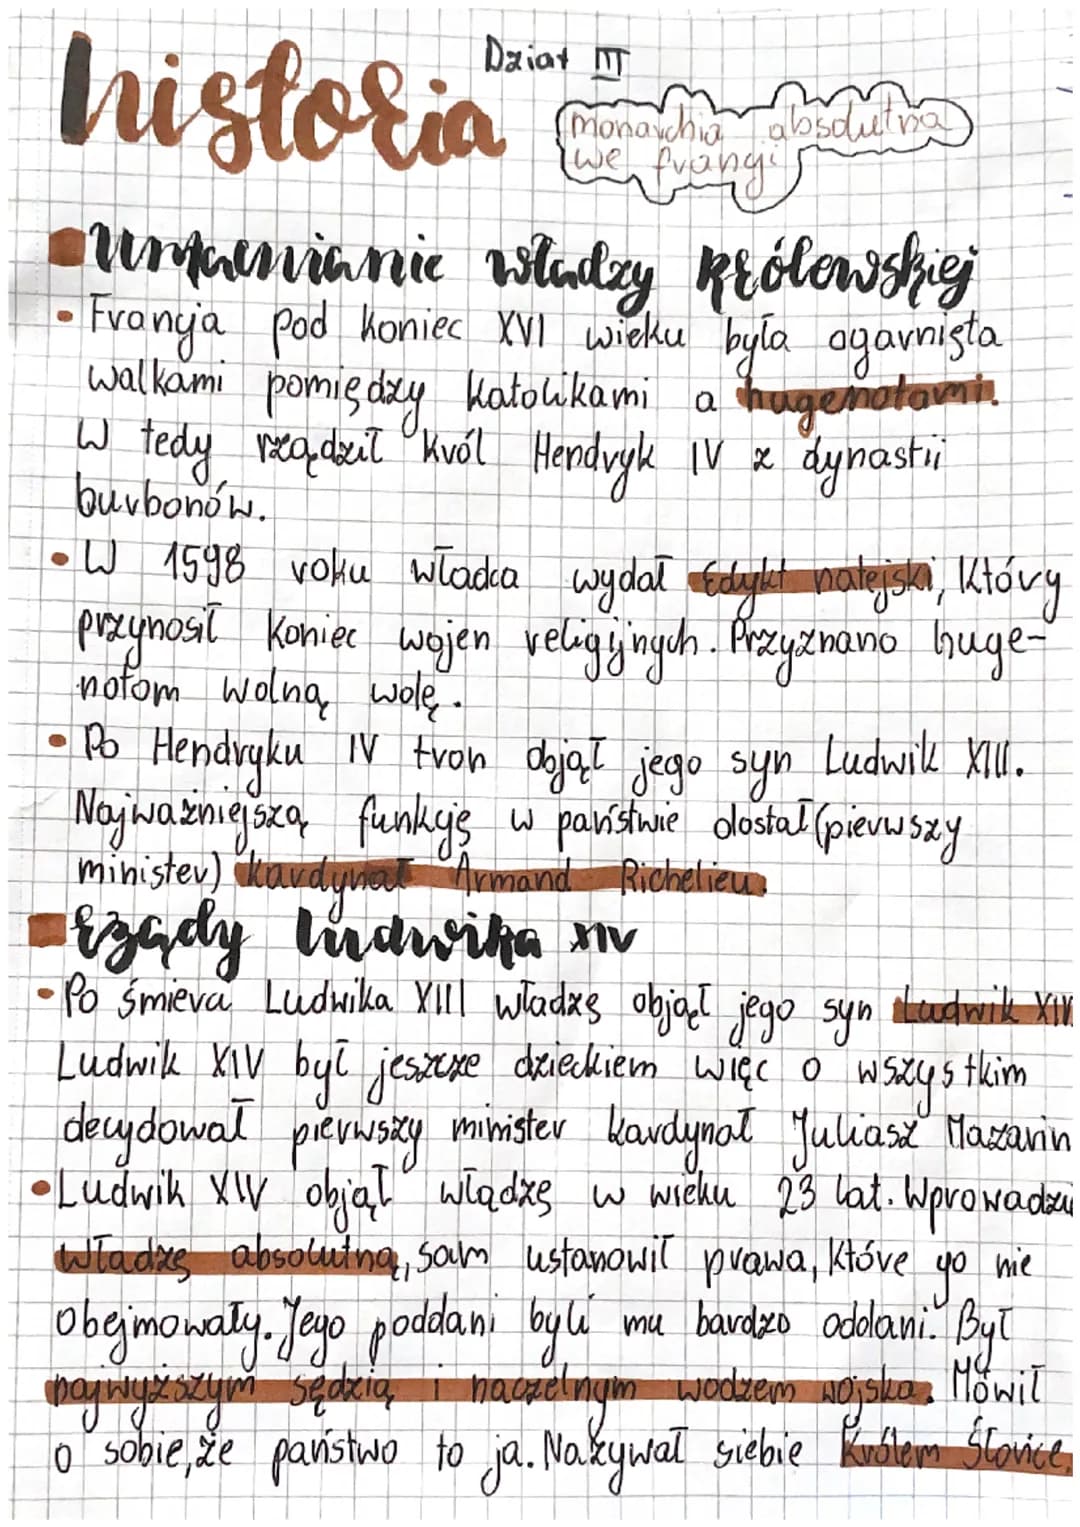 Dział III
historia
monarchia absolutna
we francji
umacnianie władzy królewskiej
• Francja pod koniec XVI wieku była ogarnięta
walkami pomiędzy katolikami a hugenotami.
W tedy rządził król Hendryk IV z dynastii
burbonów.
• W 1598 roku władca wydał Edykt natejski, który
przynosił koniec wojen religijnych. Przyznano huge-
notom wolną wolę.
• Po Hendryku IV tron objął jego syn Ludwik XIII.
Najważniejszą funkcję w państwie dostał (pierwszy
minister) kardynał Armand Richelieu.
rządy ludwika XIV
• Po śmierci Ludwika XIII władzę objął jego syn Ludwik XIV.
Ludwik XIV był jeszcze dzieckiem więc o wszystkim
decydował pierwszy minister kardynał Juliasz Mazarin
• Ludwik XIV objął włądzę w wieku 23 lat. Wprowadził
władzę absolutną, sam ustanowił prawa, które go nie
obejmowały. Jego poddani byli mu bardzo oddani. Był
najwyższym sędzią i naczelnym wodzem wojska. Mówił
o sobie, że państwo to ja. Nazywał siebie Królem Słońce.